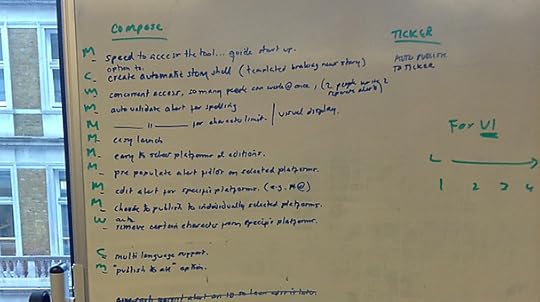 COMPOSE
M - speed to access the tool... guide start up.
option to
C - create automatic story shell (templated breaking news story)
M - concurrent access, so many people can work @ once, (2 people writing 2 separate alerts)
M - auto validate alert for spelling
M - ____ " ____ for character limit. | visual display.
M - easy launch
M - easy to select platforms & editions.
M - pre populate alert on selected platforms.
M - edit alert for specific platforms. (e.g. @)
M - choose to publish to individually selected platforms.
W - auto
remove certain characters from specific platforms.
C - multi language support.
M - "publish to all" option.
alert an ID so
TICKER
AUTO PUBLISH
TO TICKER
For V1
1 2 3 4